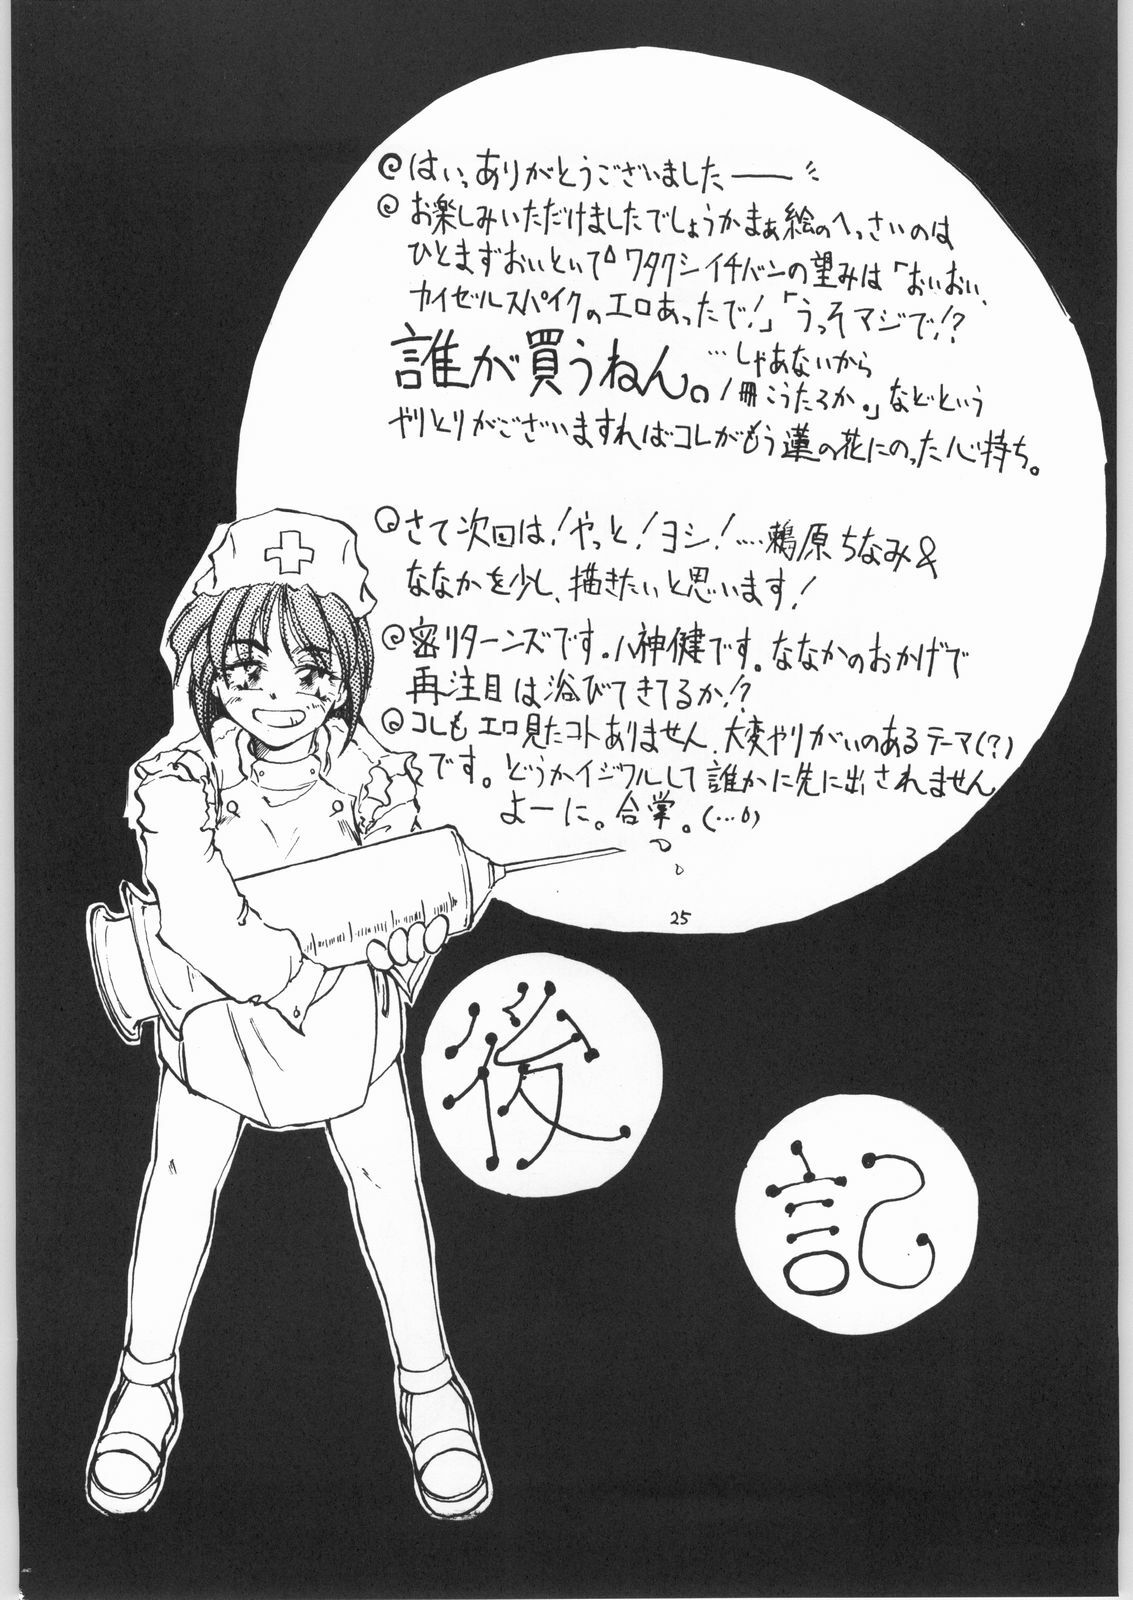 はいっありがとうございましたーー
お楽しみいただけましたでしょうかまぁ絵のへっさいのは
ひとまずおいといて ワタクシイチバンの望みは「おいおい、
カイゼルスパイクのエロあったで!」「うっそマジで!?
誰が買うねん。
…しゃあないから
1冊こうたろか。」などという
やりとりがございますればコレがもう蓮の花にのった心持ち。
さて次回は!やっと!ヨシ!…鵜原ちなみ&
ななかを少し、描きたいと思います!
密リターンズです。八神健です。ななかのおかげで
再注目は浴びてきてるか!?
コレもエロ見たコトありません、大変やりがいのあるテーマ(?)
です。どうかイジワルして誰かに先に出されません
よーに。合掌。(…
25
後
記